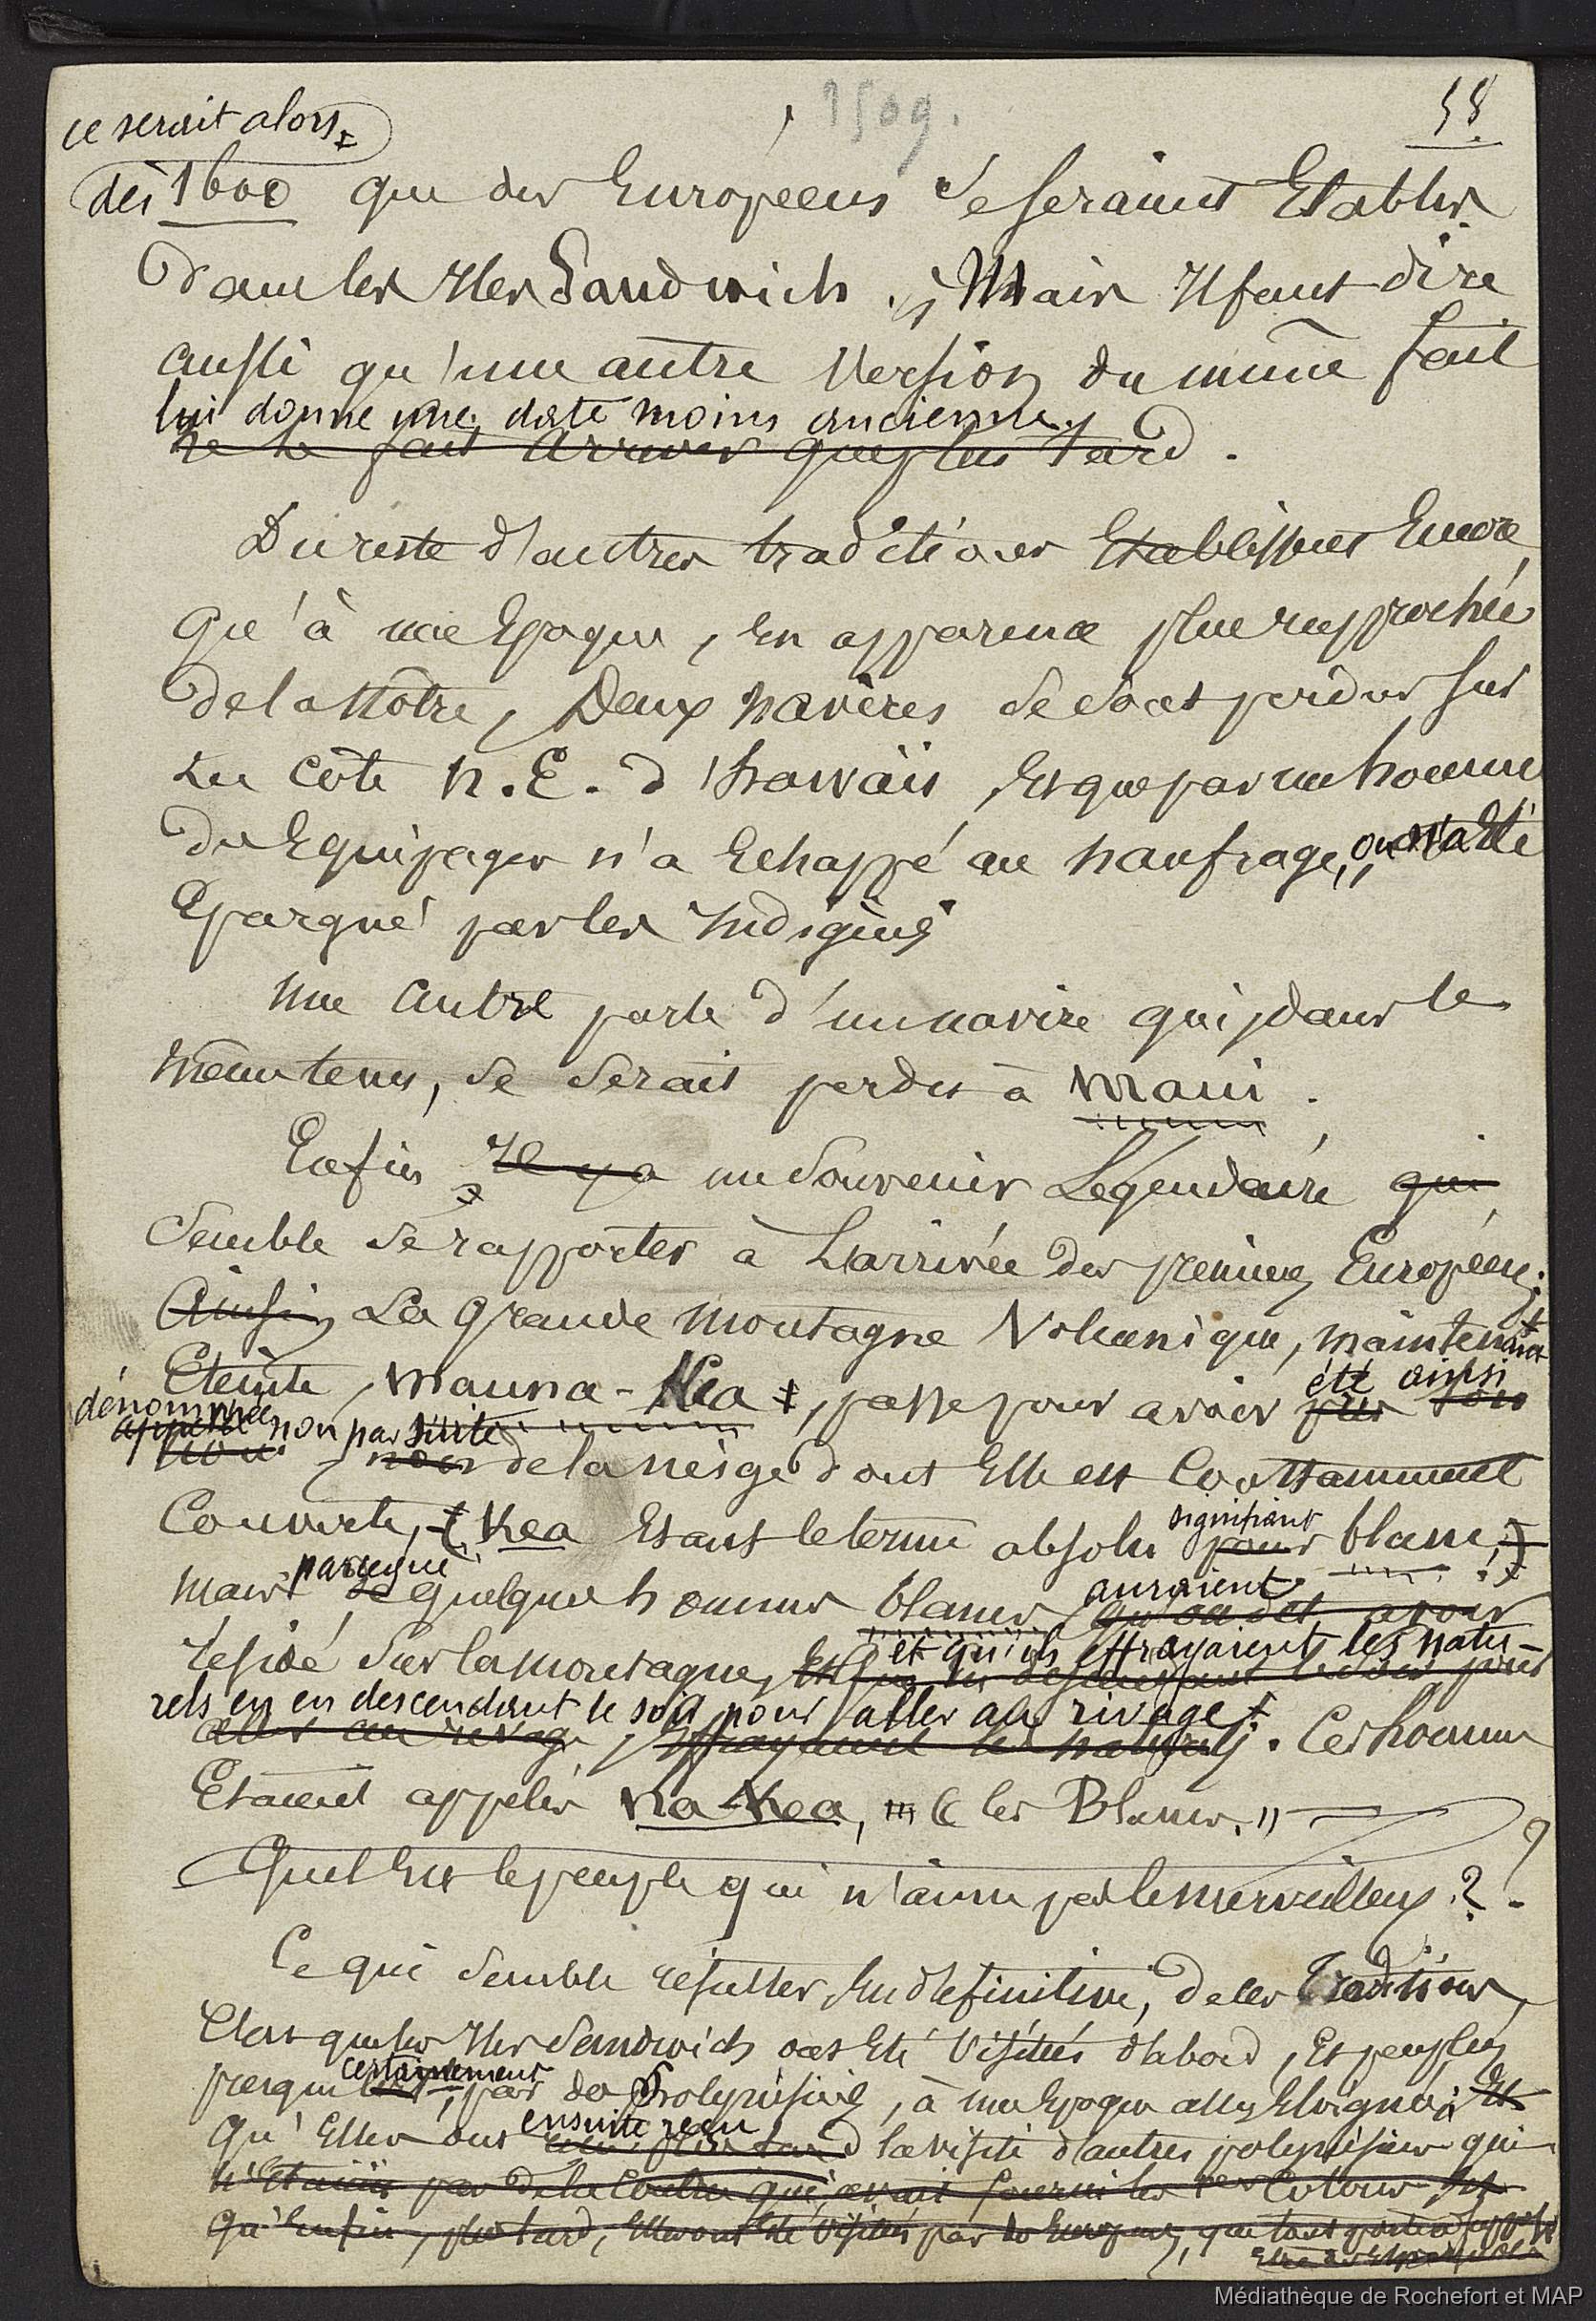 1509.
58.
ce serait alors
dès 1600 que des Européens se seraient Etablis
dans les Iles Sandwich. Mais Il faut dire
aussi qu'une autre Version du même fait
lui donne une date moins ancienne.
ne le fait arriver que plus tard.
Du reste d'autres traditions Etablissent Encore
qu'à une Epoque, En apparence plus rapprochée
de la Nôtre, Deux navires se sont perdus sur
La côte N.E. d'hawaïi, Et que pas un homme
des Equipages n'a Echappé au naufrage, ou n'a Eté
Epargné par les Indigènes
Une autre parle d'un navire qui, dans le
même tems, se serait perdu à Maui.
Enfin Il y a un Souvenir Légendaire qui
Semble se rapporter à L'arrivée des premiers Européens;
Ainsi La grande montagne Volcanique, maintenant
Eteinte, Mauna-Kea, passe pour avoir été ainsi
dénommée non par suite
appelée
non de la neige dont Elle est Constamment
Couverte, (Kea Etant le terme absolu signifiant pour blanc;)
mais parceque quelques hommes blancs auraient qu'on dit avoir
résidé sur la montagne, et qu'ils effrayaient les natu-
rels en en descendant le soir pour aller au rivage.
aller au rivage, effrayaient les naturels. Ces hommes
Etaient appelés Na-Kea, « les Blancs. »
Quel Est le peuple qui n'aime pas le merveilleux?
Ce qui Semble résulter, En définitive, de ces Traditions,
C'est que les Iles Sandwich ont Eté Visitées d'abord, Et peuplées
presque certainement, par des Polynésiens, à une Epoque assez Eloignée; Et
qu'Elles ont ensuite reçu plus tard la visite d'autres polynésiens qui
n'Etaient pas de la Contrée qui avait fourni les 1ers Colons, Et
qu'Enfin, plus tard, Elles ont Eté Visitées par des Européens, que tout porte à
Médiathèque de Rochefort et MAP